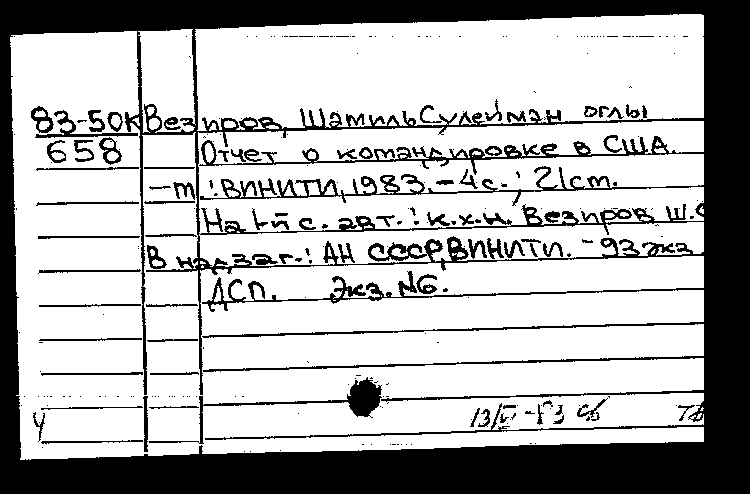 83-50К Везиров, Шамиль Сулейман оглы
658 Отчет о командировке в США.
—м.: ВИНИТИ, 1983. – 4 с.; 21 см.
На 1-й с. авт.: к.х.н. Везиров Ш.С
В надзаг.: АН СССР, ВИНИТИ. – 93 экз.
ДСП. Экз. №6.
13/VI-83
Ч